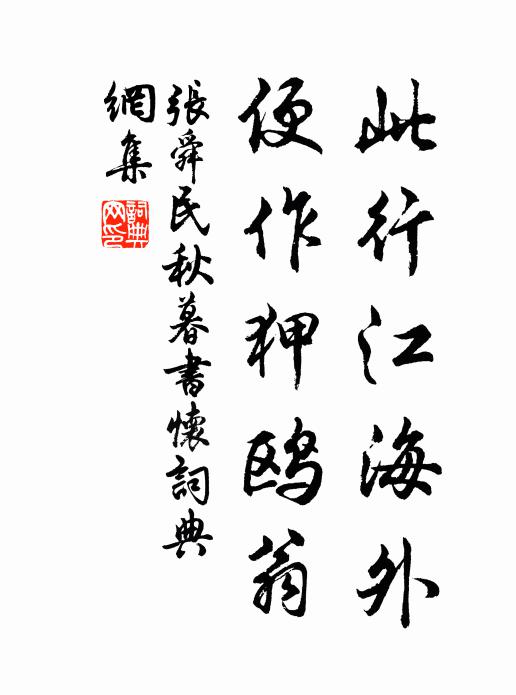 此行江海外
便作狎鸥翁
張舜民秋暮書懷詞典
網集
詞典網印